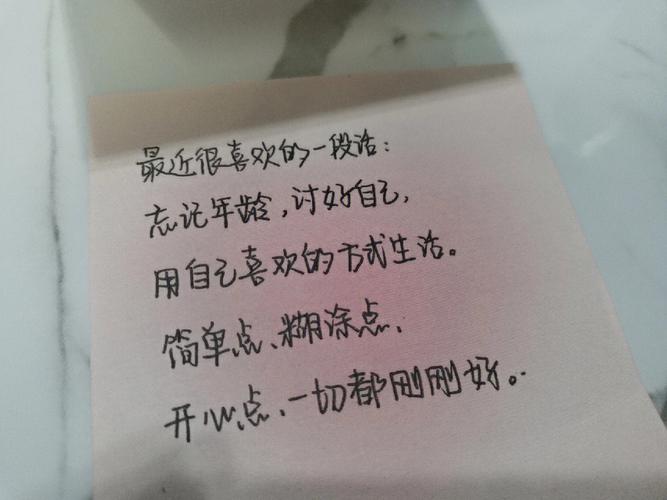 最近很喜欢的一段话:
忘记年龄,讨好自己,
用自己喜欢的方式生活。
简单点、糊涂点、
开心点、一切都刚刚好。